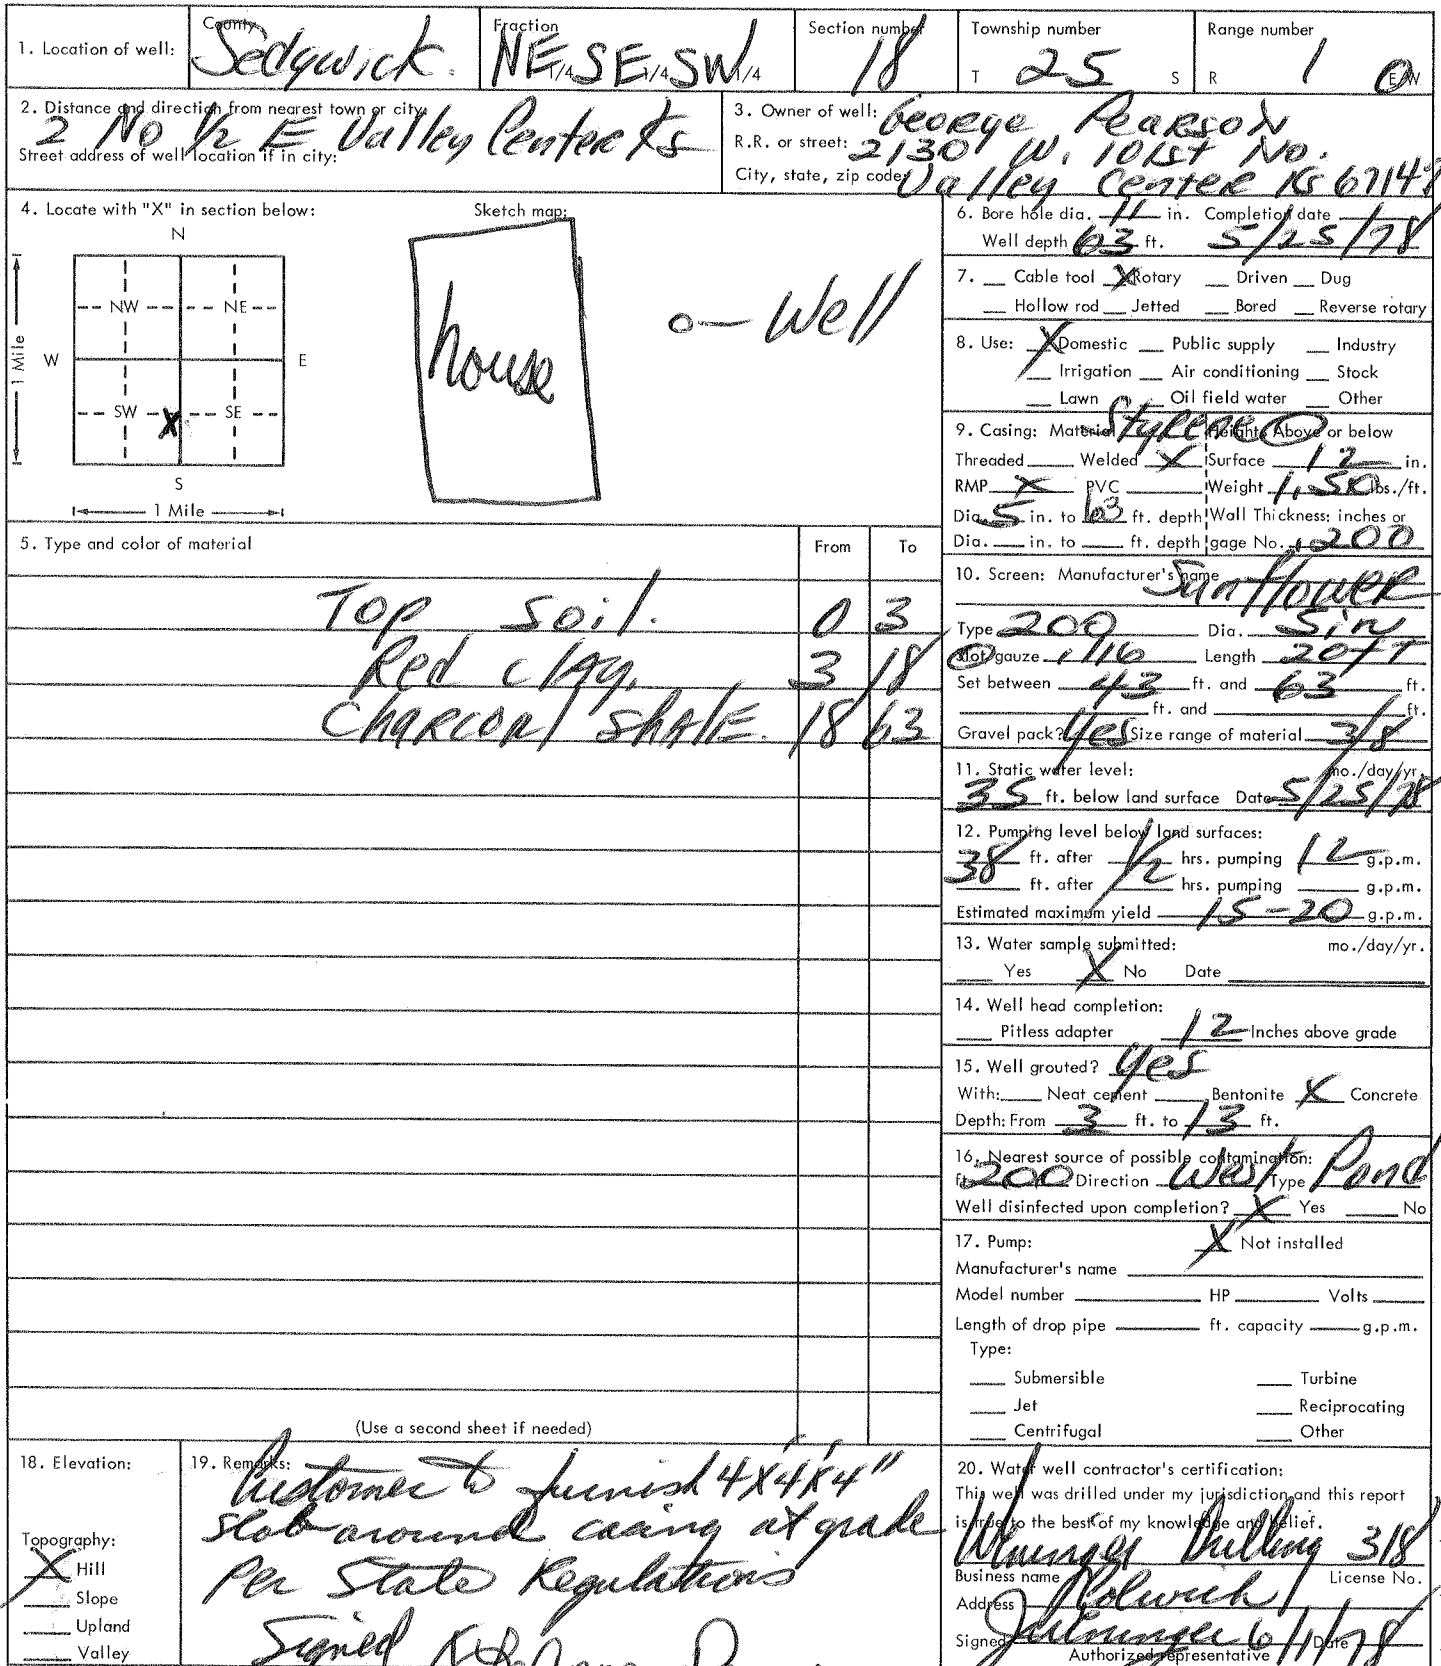 County Fraction Section number Township number Range number
1. Location of well: Sedgwick. NE 1/4 SE 1/4 SW 1/4 18 T 25 S R 1 E/W
2. Distance and direction from nearest town or city:
2 No 1/2 E Valley Center Ks
Street address of well location if in city:
3. Owner of well: George Pearson
R.R. or street: 2130 W. 101st No.
City, state, zip code: Valley Center Ks 67147
4. Locate with "X" in section below: Sketch map:
N
NW NE
W E
SW X SE
S
1 Mile
1 Mile
house
o— Well
5. Type and color of material From To
Top Soil. 0 3
Red clay, 3 18
Charcoal Shale. 18 63
(Use a second sheet if needed)
6. Bore hole dia. 11 in. Completion date
Well depth 63 ft. 5/25/78
7. __ Cable tool X Rotary __ Driven __ Dug
__ Hollow rod __ Jetted __ Bored __ Reverse rotary
8. Use: X Domestic __ Public supply __ Industry
__ Irrigation __ Air conditioning __ Stock
__ Lawn __ Oil field water __ Other
9. Casing: Material Styrene Height: Above or below
Threaded ___ Welded X Surface 12 in.
RMP X PVC ___ Weight 1.50 lbs./ft.
Dia. 5 in. to 63 ft. depth Wall Thickness: inches or
Dia. ___ in. to ___ ft. depth gage No. .200
10. Screen: Manufacturer's name
Sunflower
Type 200 Dia. 5in
Slot/gauze 1/16 Length 20ft
Set between 43 ft. and 63 ft.
___ ft. and ___ ft.
Gravel pack? Yes Size range of material 3/8
11. Static water level: mo./day/yr.
35 ft. below land surface Date 5/25/78
12. Pumping level below land surfaces:
38 ft. after 1/2 hrs. pumping 12 g.p.m.
___ ft. after ___ hrs. pumping ___ g.p.m.
Estimated maximum yield 15-20 g.p.m.
13. Water sample submitted: mo./day/yr.
___ Yes X No Date ___
14. Well head completion:
___ Pitless adapter 12 Inches above grade
15. Well grouted? Yes
With: ___ Neat cement ___ Bentonite X Concrete
Depth: From 3 ft. to 13 ft.
16. Nearest source of possible contamination:
ft. 200 Direction West Type Pond
Well disinfected upon completion? X Yes ___ No
17. Pump: X Not installed
Manufacturer's name ___
Model number ___ HP ___ Volts ___
Length of drop pipe ___ ft. capacity ___ g.p.m.
Type:
___ Submersible ___ Turbine
___ Jet ___ Reciprocating
___ Centrifugal ___ Other
18. Elevation:
Topography:
X Hill
___ Slope
___ Upland
___ Valley
19. Remarks: Customer to furnish 4'x4'x4"
slab around casing at grade
Per State Regulations
Signed
20. Water well contractor's certification:
This well was drilled under my jurisdiction and this report
is true to the best of my knowledge and belief.
Wininger Drilling 318
Business name License No.
Address Colwich
Signed Wininger 6/1/78 Date
Authorized representative